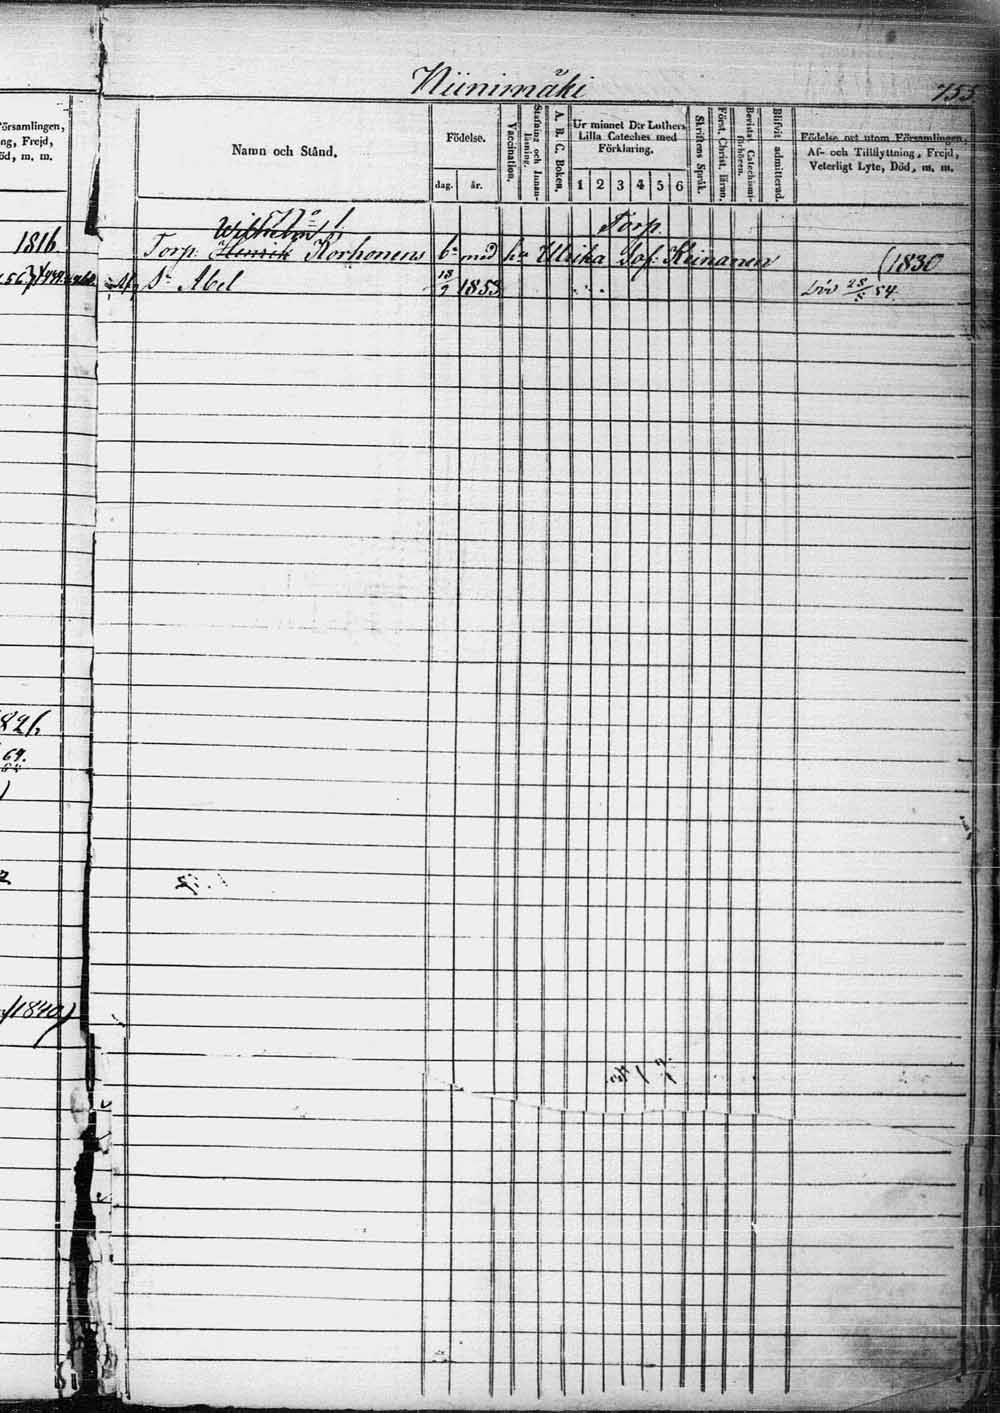 Niinimäki
755
örsamlingen,
ng, Frejd,
öd, m. m.
Namn och Stånd.
Födelse.
dag. år.
Vaccination.
Stafning och Innan-
läsning.
A. B. C. Boken.
Ur minnet D:r Luthers
Lilla Cateches med
Förklaring.
1 2 3 4 5 6
Skriftens Språk.
Först. Christ. läran.
Bevistat Catechismi-
förhören.
Blifvit admitterad.
Födelse ort utom Församlingen,
Af- och Tillflyttning, Frejd,
Veterligt Lyte, Död, m. m.
Wilhelm Torp.
1816 Torp. Henrik Korhonens med Ulrika Sof: Keinanen (1830
Abel 18/9 1853 Död 28/5 54.
826
64.
1840)